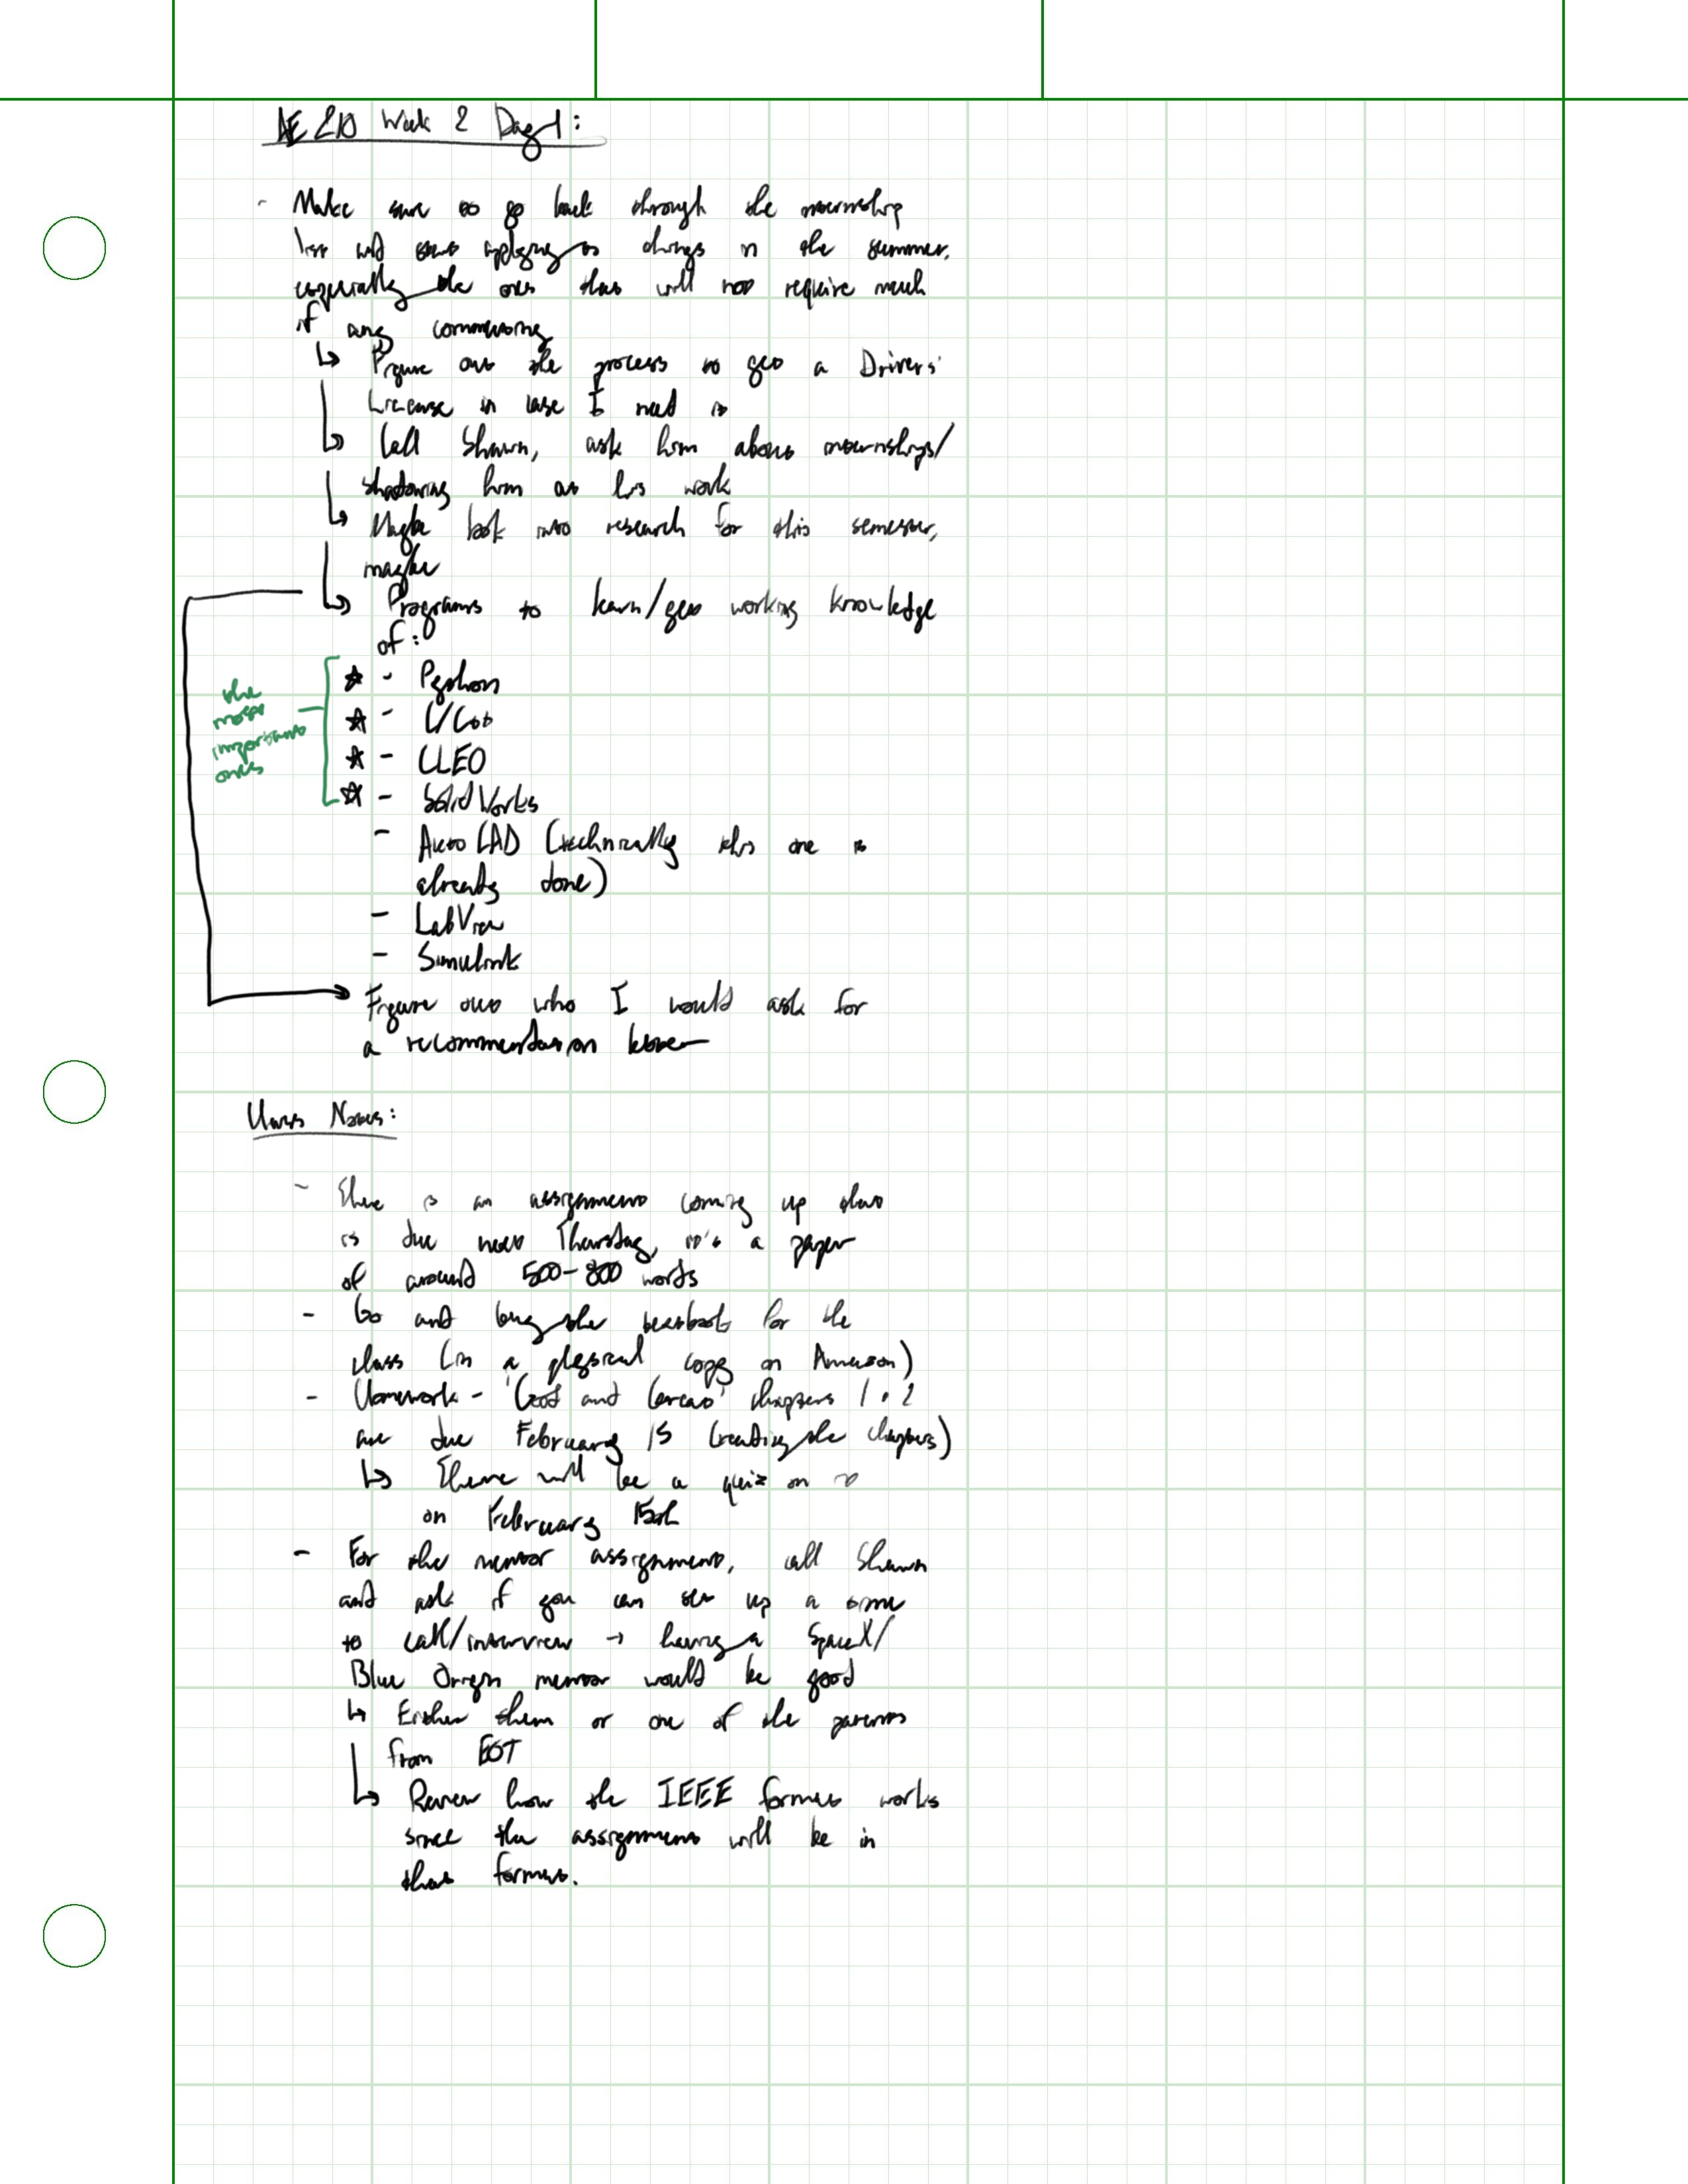 AE 210 Week 2 Day 1:
- Make sure to go back through the internship
list and start applying to things in the summer,
especially the ones that will not require much
if any commuting
↳ Figure out the process to get a Drivers'
License in case I need it
↳ Call Shawn, ask him about internships/
shadowing him at his work
↳ Maybe look into research for this semester,
maybe
↳ Programs to learn/get working knowledge
of:
the
most
important
ones
☆ - Python
☆ - C/C++
☆ - CREO
☆ - SolidWorks
- AutoCAD (technically this one is
already done)
- LabView
- Simulink
→ Figure out who I would ask for
a recommendation letter
Class Notes:
- There is an assignment coming up that
is due next Thursday, it's a paper
of around 500-800 words
- Go and buy the textbook for the
class (in a physical copy on Amazon)
- Homework - 'Good and Great' chapters 1 + 2
are due February 15 (reading the chapters)
↳ There will be a quiz on it
on February 15th
- For the mentor assignment, call Shawn
and ask if you can set up a time
to call/interview → having a SpaceX/
Blue Origin mentor would be good
↳ Either them or one of the parents
from EOT
↳ Review how the IEEE format works
since the assignment will be in
that format.